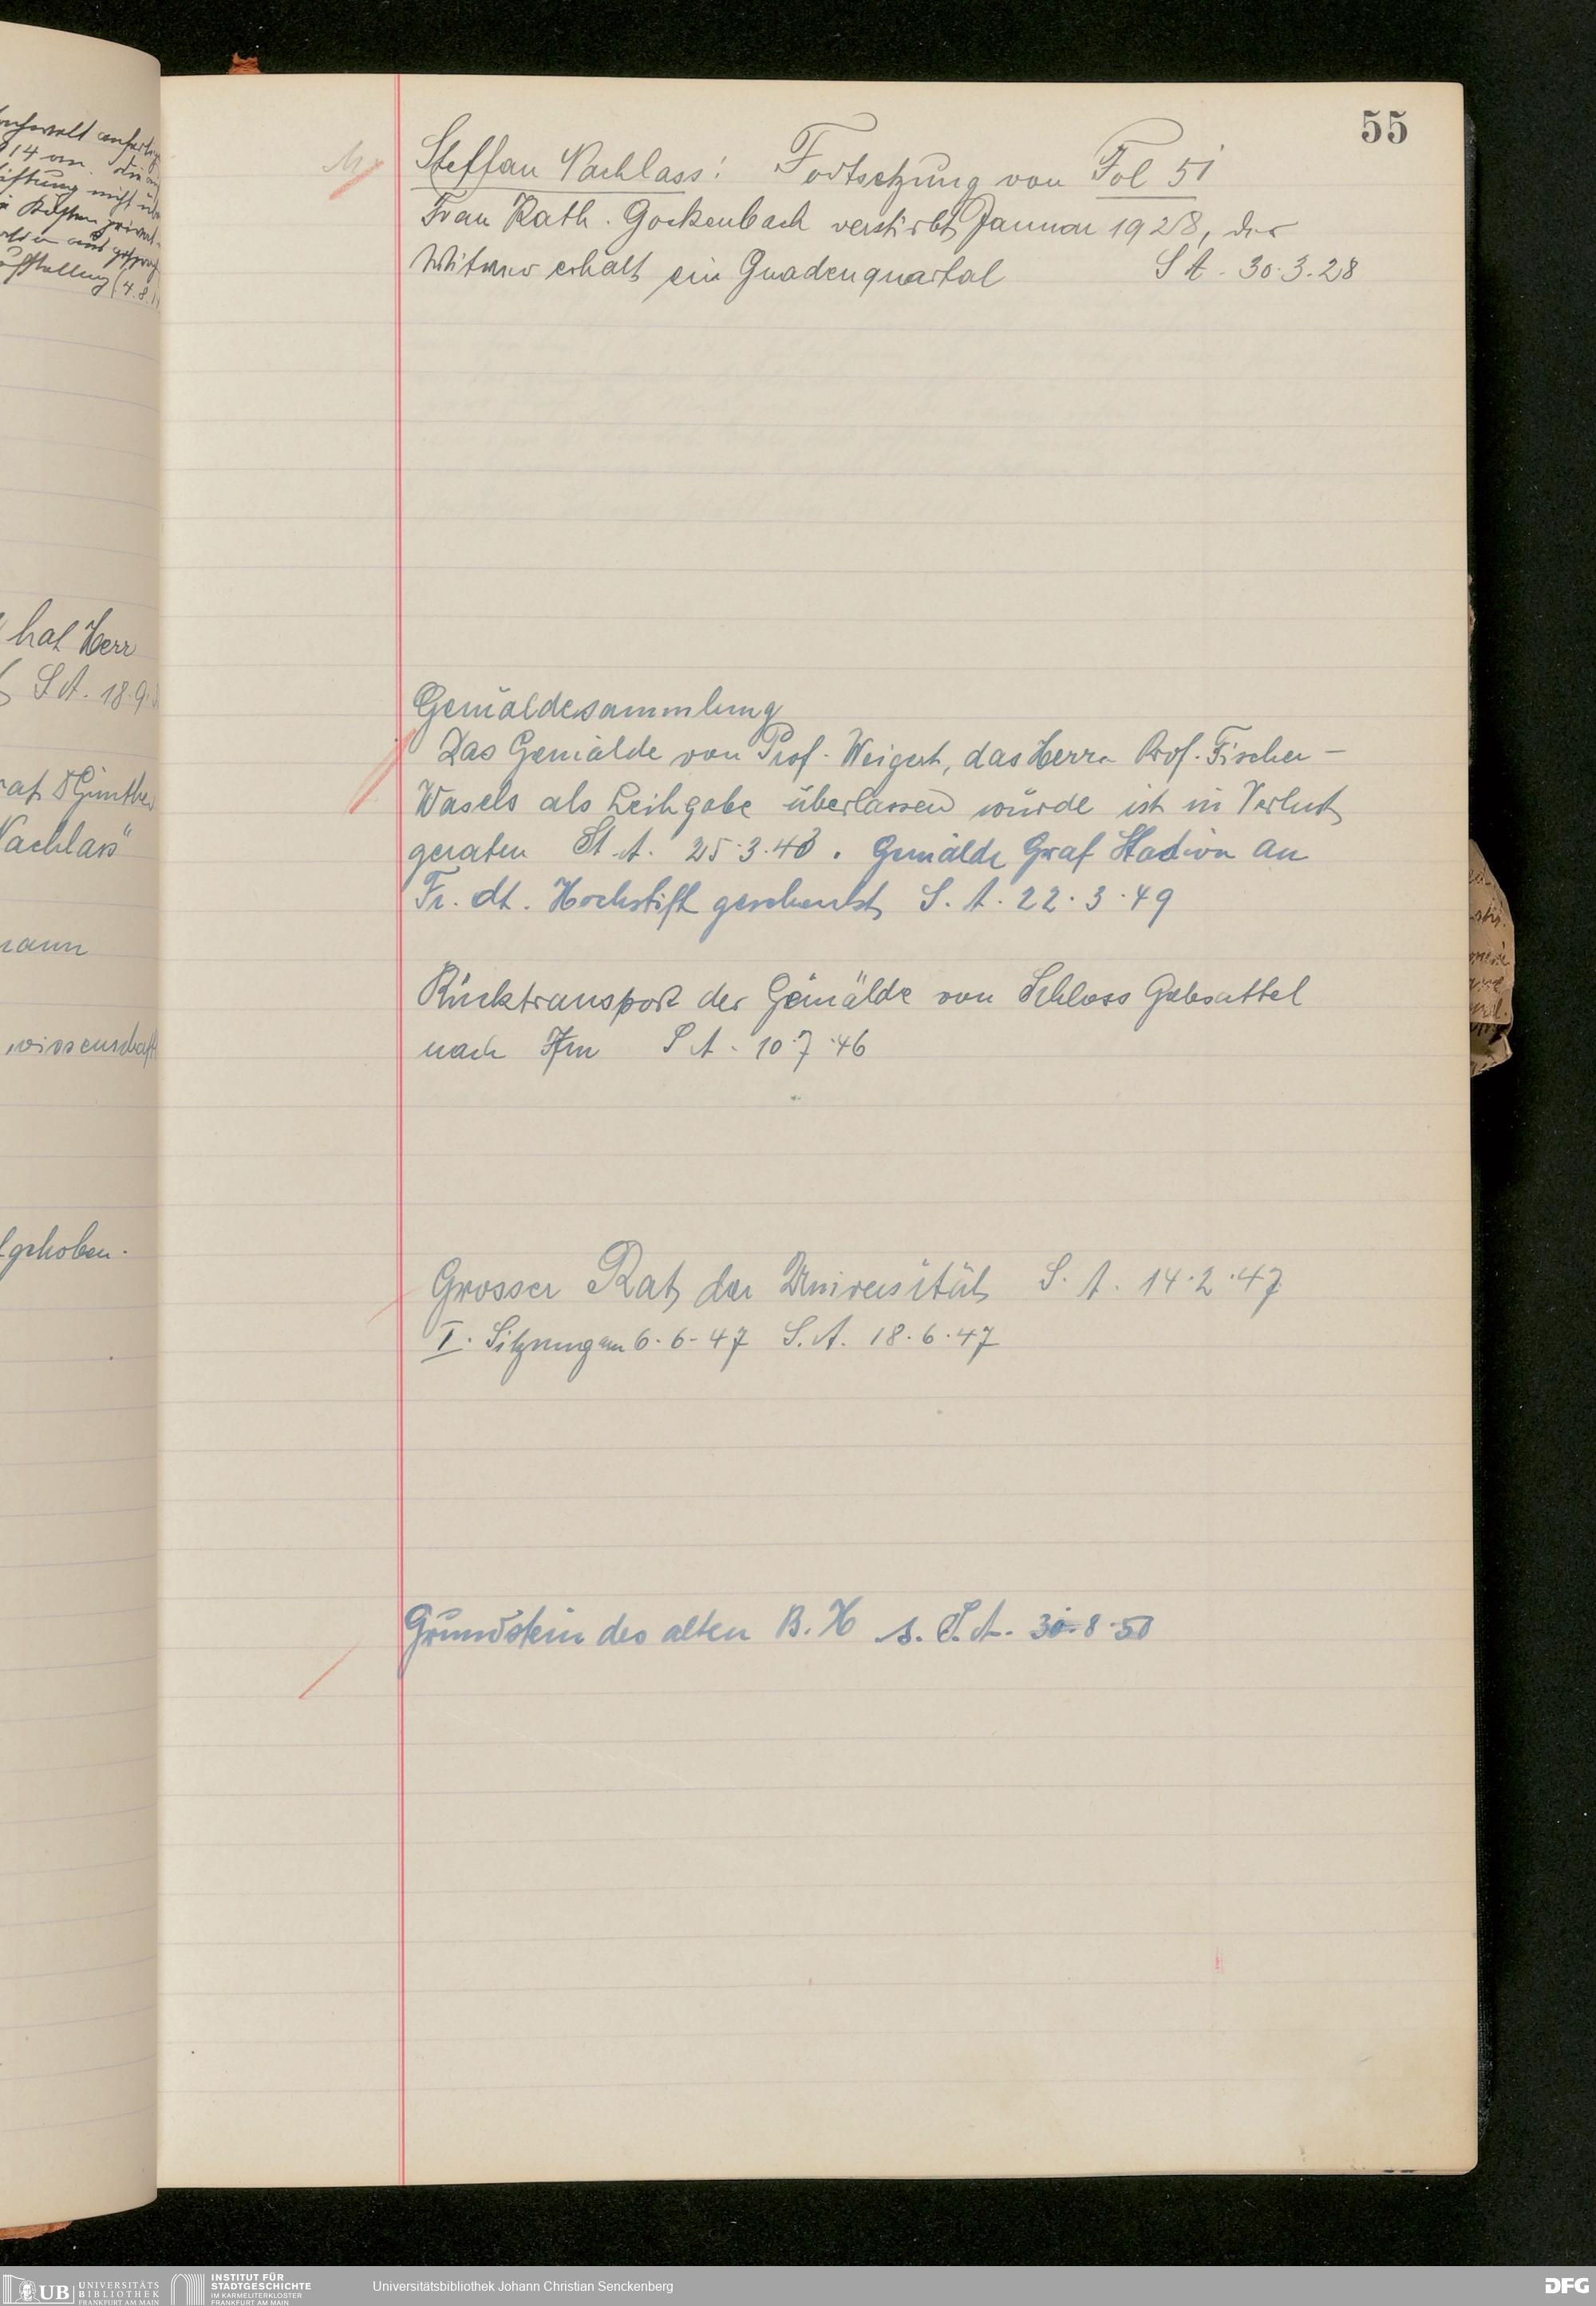 55
Steffan Nachlass: Fortsetzung von Fol 51
Frau Kath. Gockenbach verstirbt Januar 1928, der
Witwer erhält ein Gnadenquartal S A. 30.3.28
Gemäldesammlung
Das Gemälde von Prof. Weigert, das Herrn Prof. Fischer-
Wasels als Leihgabe überlassen wurde ist in Verlust
geraten St. A. 25.3.43. Gemälde Graf Stadion an
Fr. dt. Hochstift geschenkt S. A. 22.3.49
Rücktransport der Gemälde von Schloss Gebsattel
nach Ffm S A. 10.7.46
Grosser Rat der Universität S. A. 14.2.47
I. Sitzung am 6.6.47 S. A. 18.6.47
Grundstein des alten B. H s. S. A. 30.8.50
hat Herr
S A. 18.9.
Nachlass"
wissenschaft
gehoben.
UB UNIVERSITÄTS
BIBLIOTHEK
FRANKFURT AM MAIN
INSTITUT FÜR
STADTGESCHICHTE
IM KARMELITERKLOSTER
FRANKFURT AM MAIN
Universitätsbibliothek Johann Christian Senckenberg
DFG